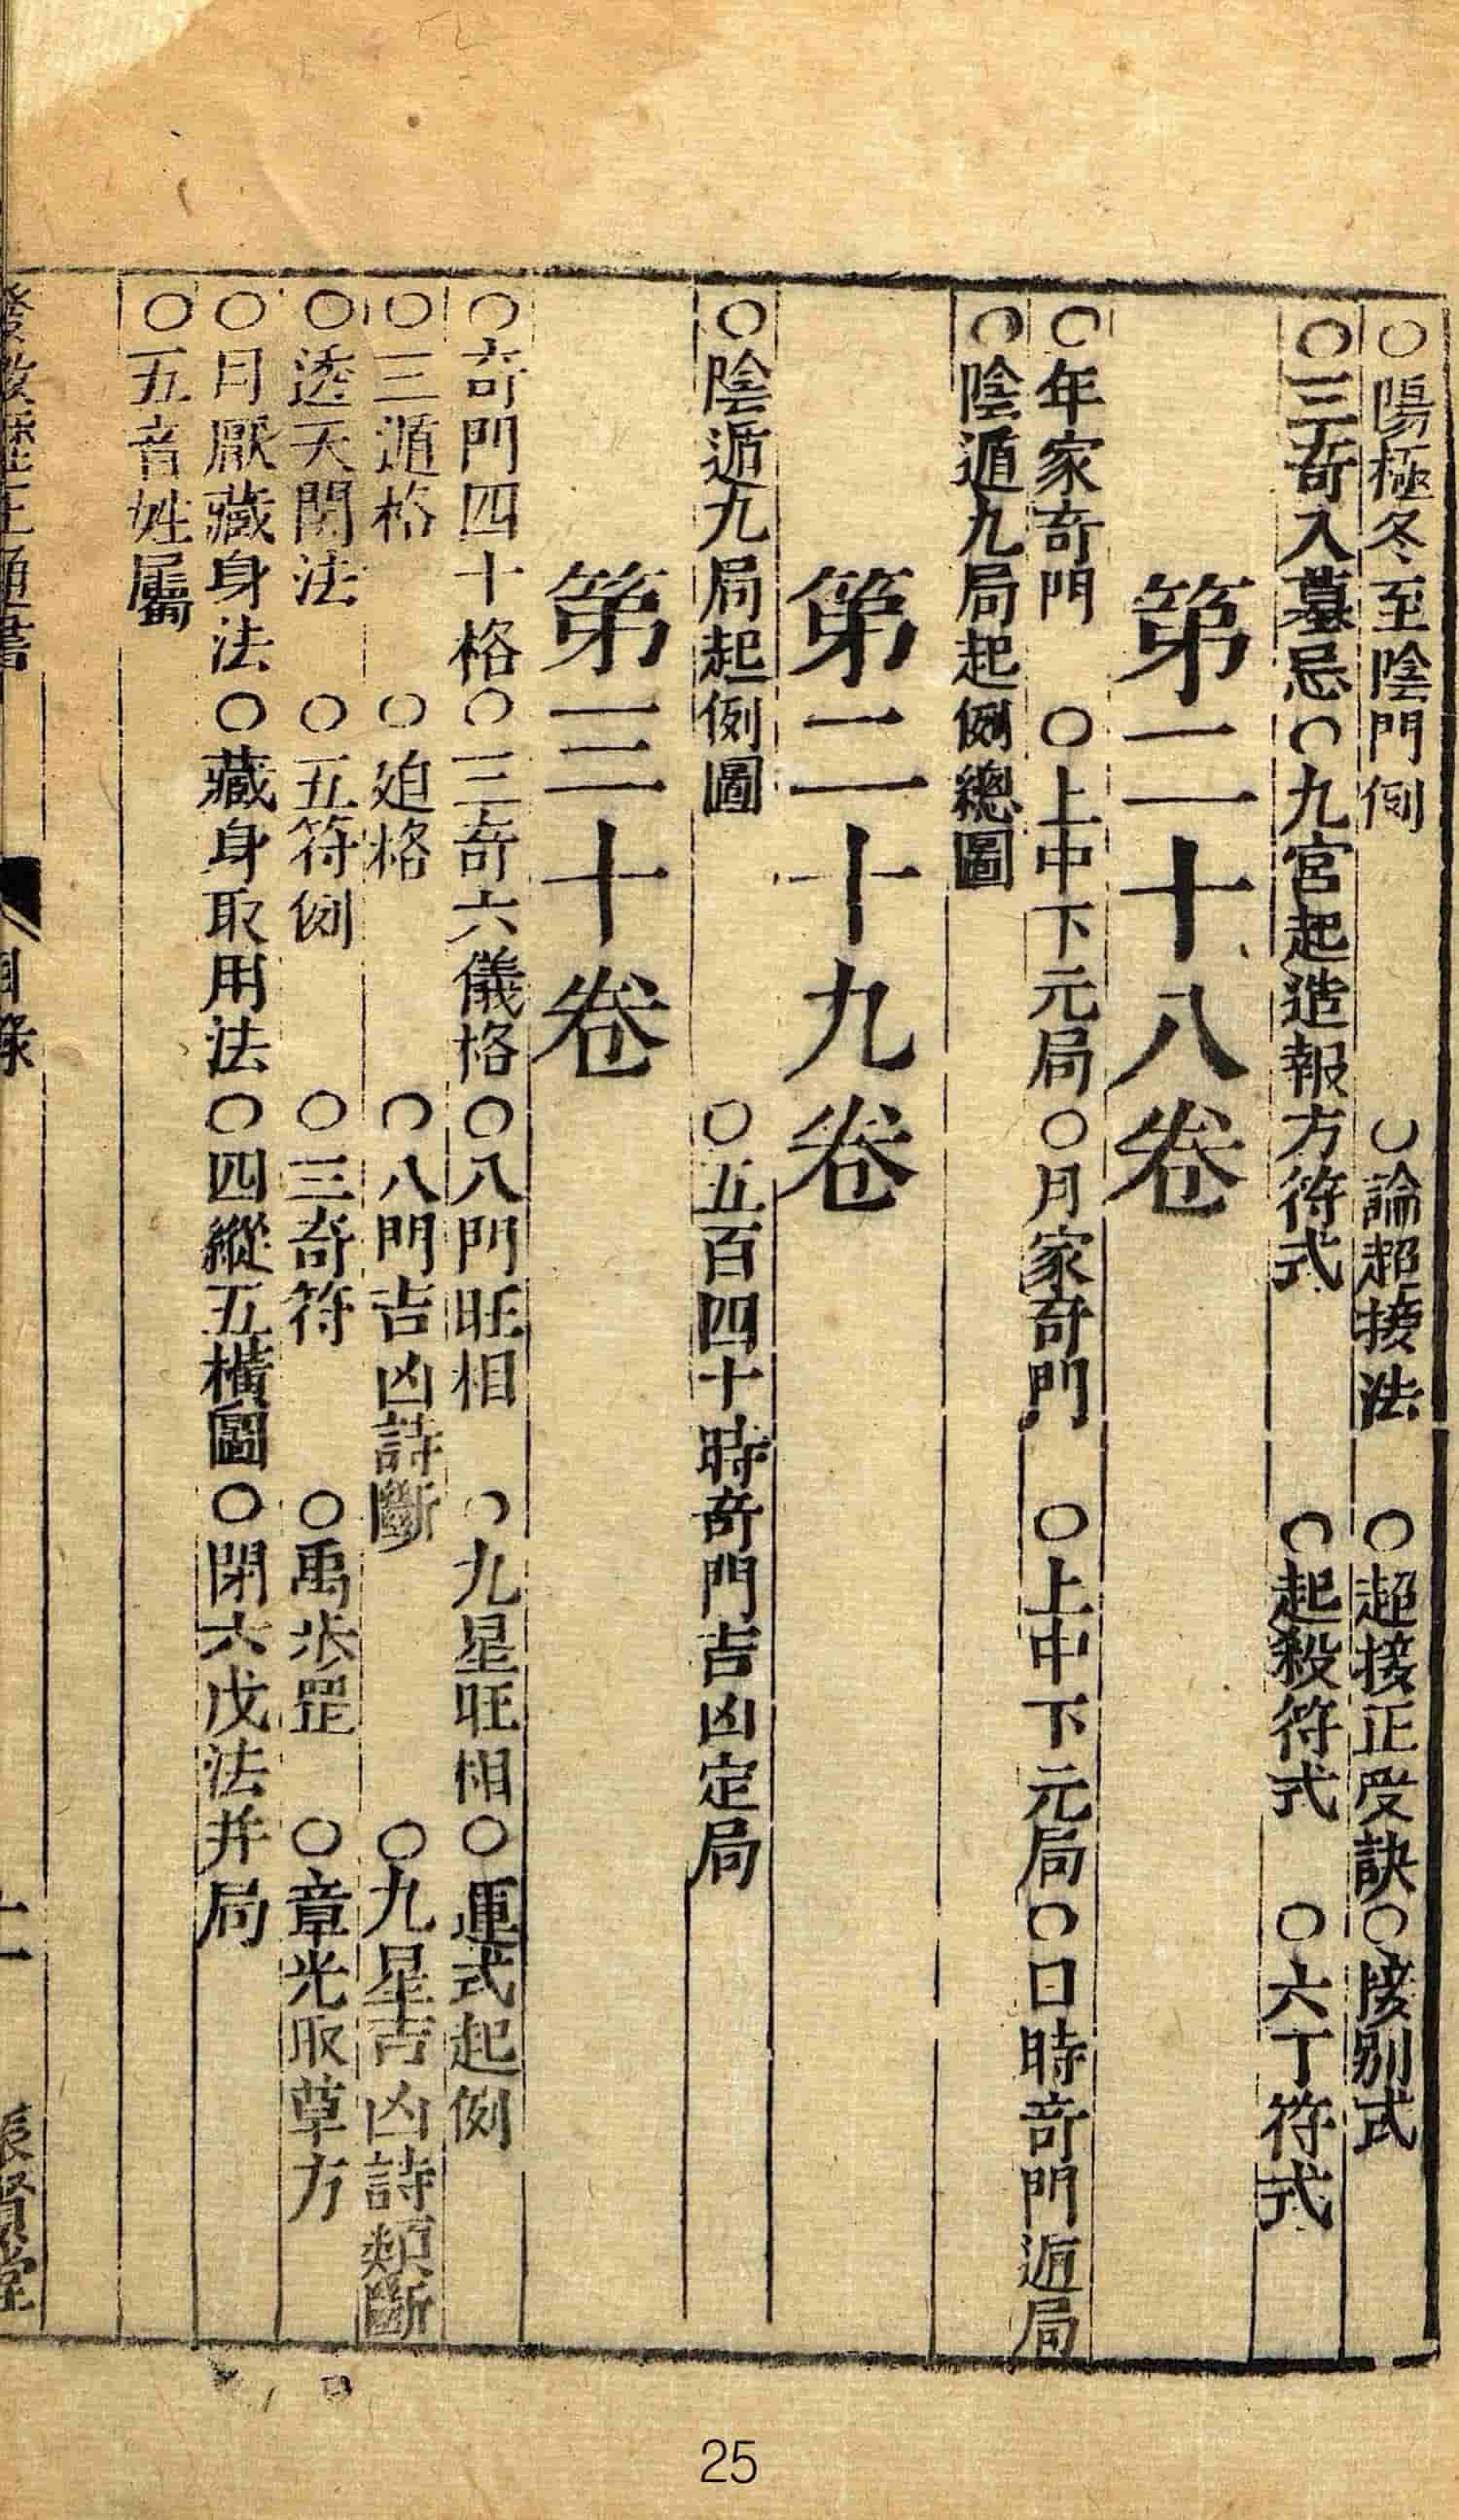 ○陽極冬至陰門例 ○論超接法 ○超接正受訣○接别式
○三奇入墓忌○九宮起造報方符式 ○起殺符式 ○六丁符式
第二十八卷
○年家奇門 ○上中下元局○月家奇門 ○上中下元局○日時奇門遁局
○陰遁九局起例總圖
第二十九卷
○陰遁九局起例圖 ○五百四十時奇門吉凶定局
第三十卷
○奇門四十格○三奇六儀格○八門旺相 ○九星旺相○運式起例
○三遁格 ○迫格 ○八門吉凶詩斷 ○九星吉凶詩類斷
○透天關法 ○五符例 ○三奇符 ○禹步罡 ○章光取草方
○月厭藏身法○藏身取用法○四縱五橫圖○閉六戊法并局
○五音姓屬
目錄
25